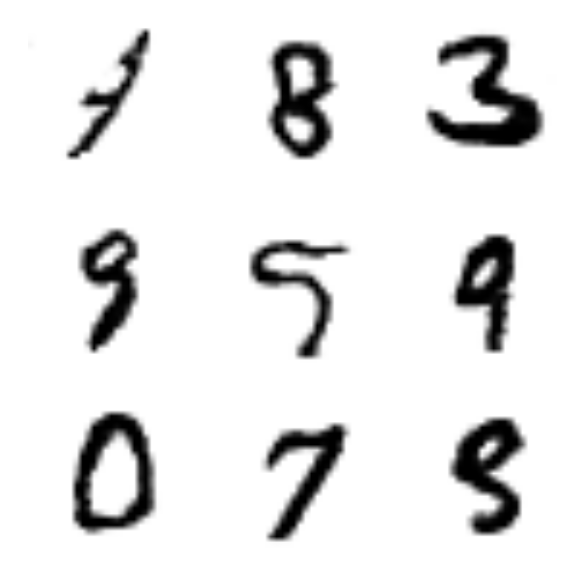 8 3
9 5 9
0 7 8